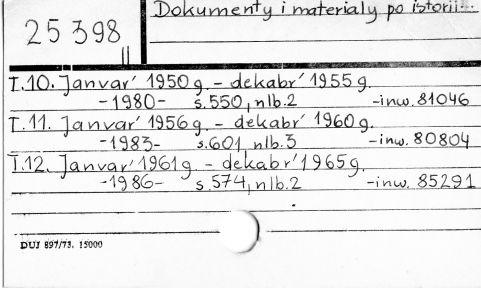 Dokumenty i materialy po istorii...
25 398
II
T.10. Janvar' 1950 g. - dekabr' 1955 g.
-1980- s.550, nlb.2 -inw. 81046
T.11. Janvar' 1956 g. - dekabr' 1960 g.
-1983- s.601, nlb.3 -inw. 80804
T.12. Janvar' 1961 g. - dekabr' 1965 g.
-1986- s.574, nlb.2 -inw. 85291
DUJ 897/73. 15000